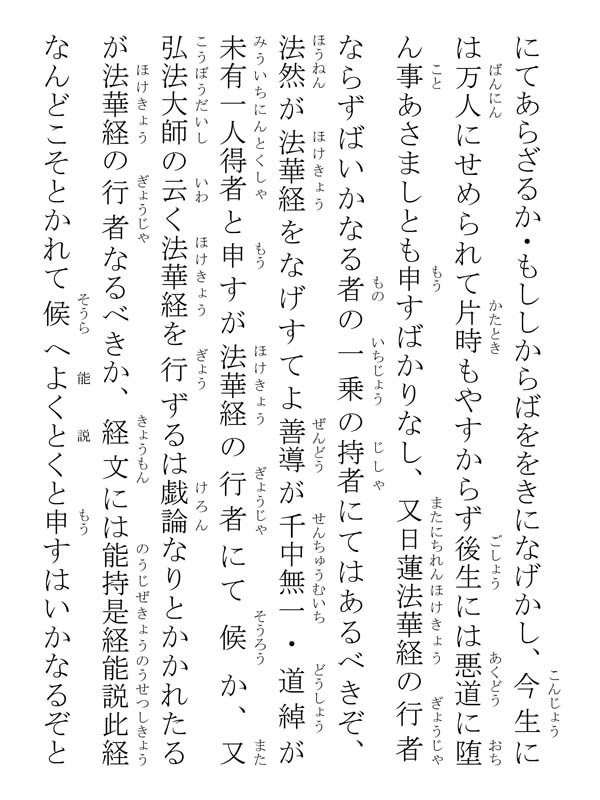 にてあらざるか・もししからばををきになげかし、今生に
は万人にせめられて片時もやすからず後生には悪道に堕
ん事あさましとも申すばかりなし、又日蓮法華経の行者
ならずばいかなる者の一乗の持者にてはあるべきぞ、
法然が法華経をなげすてよ善導が千中無一・道綽が
未有一人得者と申すが法華経の行者にて候か、又
弘法大師の云く法華経を行ずるは戯論なりとかかれたる
が法華経の行者なるべきか、経文には能持是経能説此経
なんどこそとかれて候へよくとくと申すはいかなるぞと